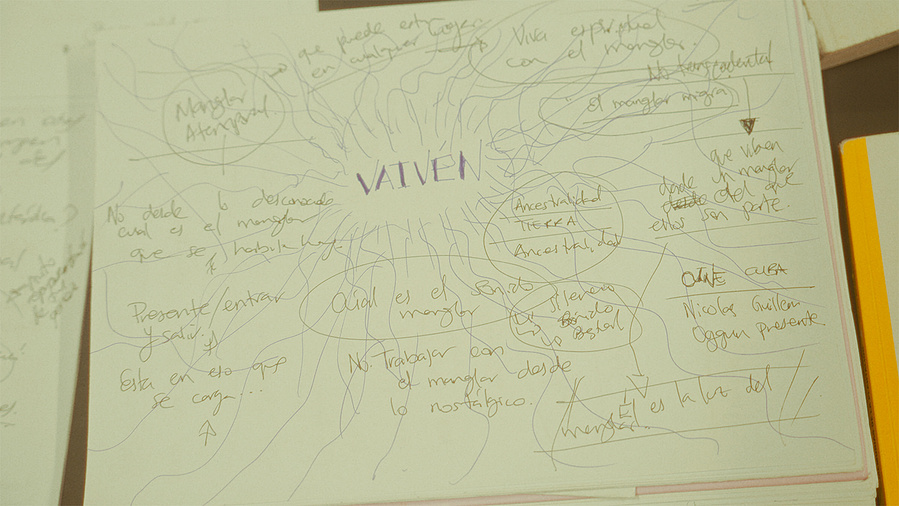 que puede estar
en cualquier lugar.
Viva espiritual
con el manglar.
No tempodental
Manglar
Atemporal
el manglar migra
VAIVEN
que viben
desde un manglar
del que
ellos son parte.
No desde lo desconocido
cual es el manglar
que se habita hoy.
Ancestralidad
TIERRA
Ancestralidad
Presente/entrar
y salir.
Cual es el sonido
manglar
Silencio
Bestial
CINE CUBA
Nicolas Guillen
Oggun presente
Esta en eso que
se carga...
No. Trabajar con
el manglar desde
lo nostalgico.
es la luz del
manglar.